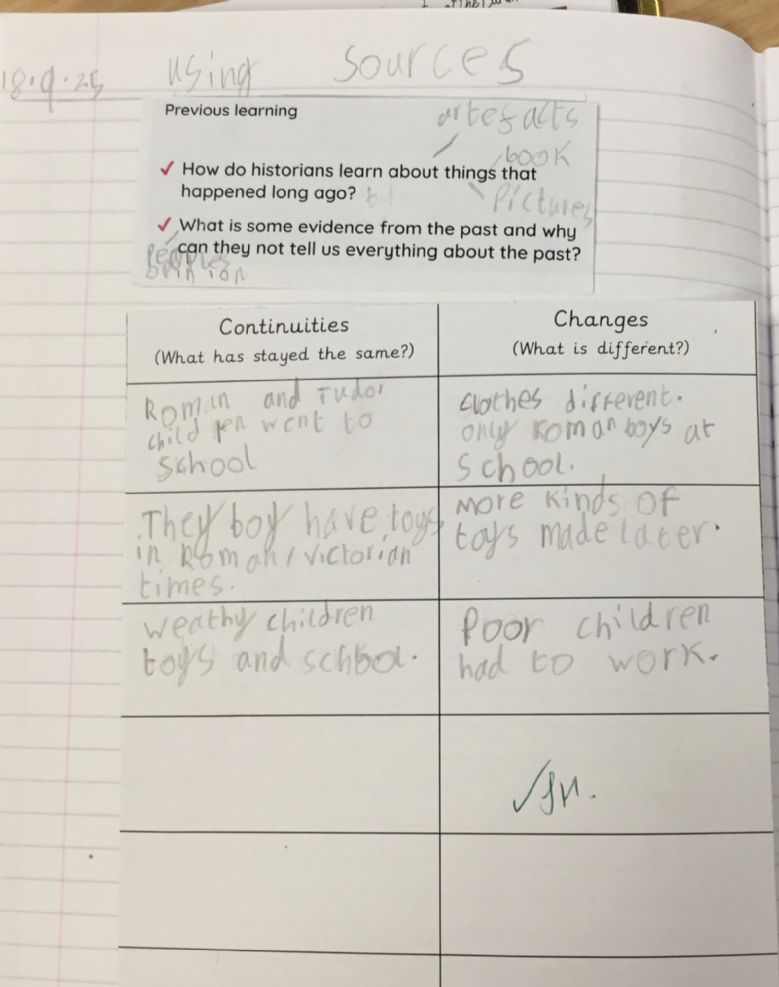 18.9.25 using sources
Previous learning
artefacts
book
✓ How do historians learn about things that
happened long ago?
Pictures
✓ What is some evidence from the past and why
can they not tell us everything about the past?
Peoples
opinion
Continuities
(What has stayed the same?)
Changes
(What is different?)
Roman and Tudor
children went to
school
clothes different.
only roman boys at
school.
They boy have toys
in Roman/victorian
times.
more kinds of
toys made later.
weathy children
toys and school.
Poor children
had to work.